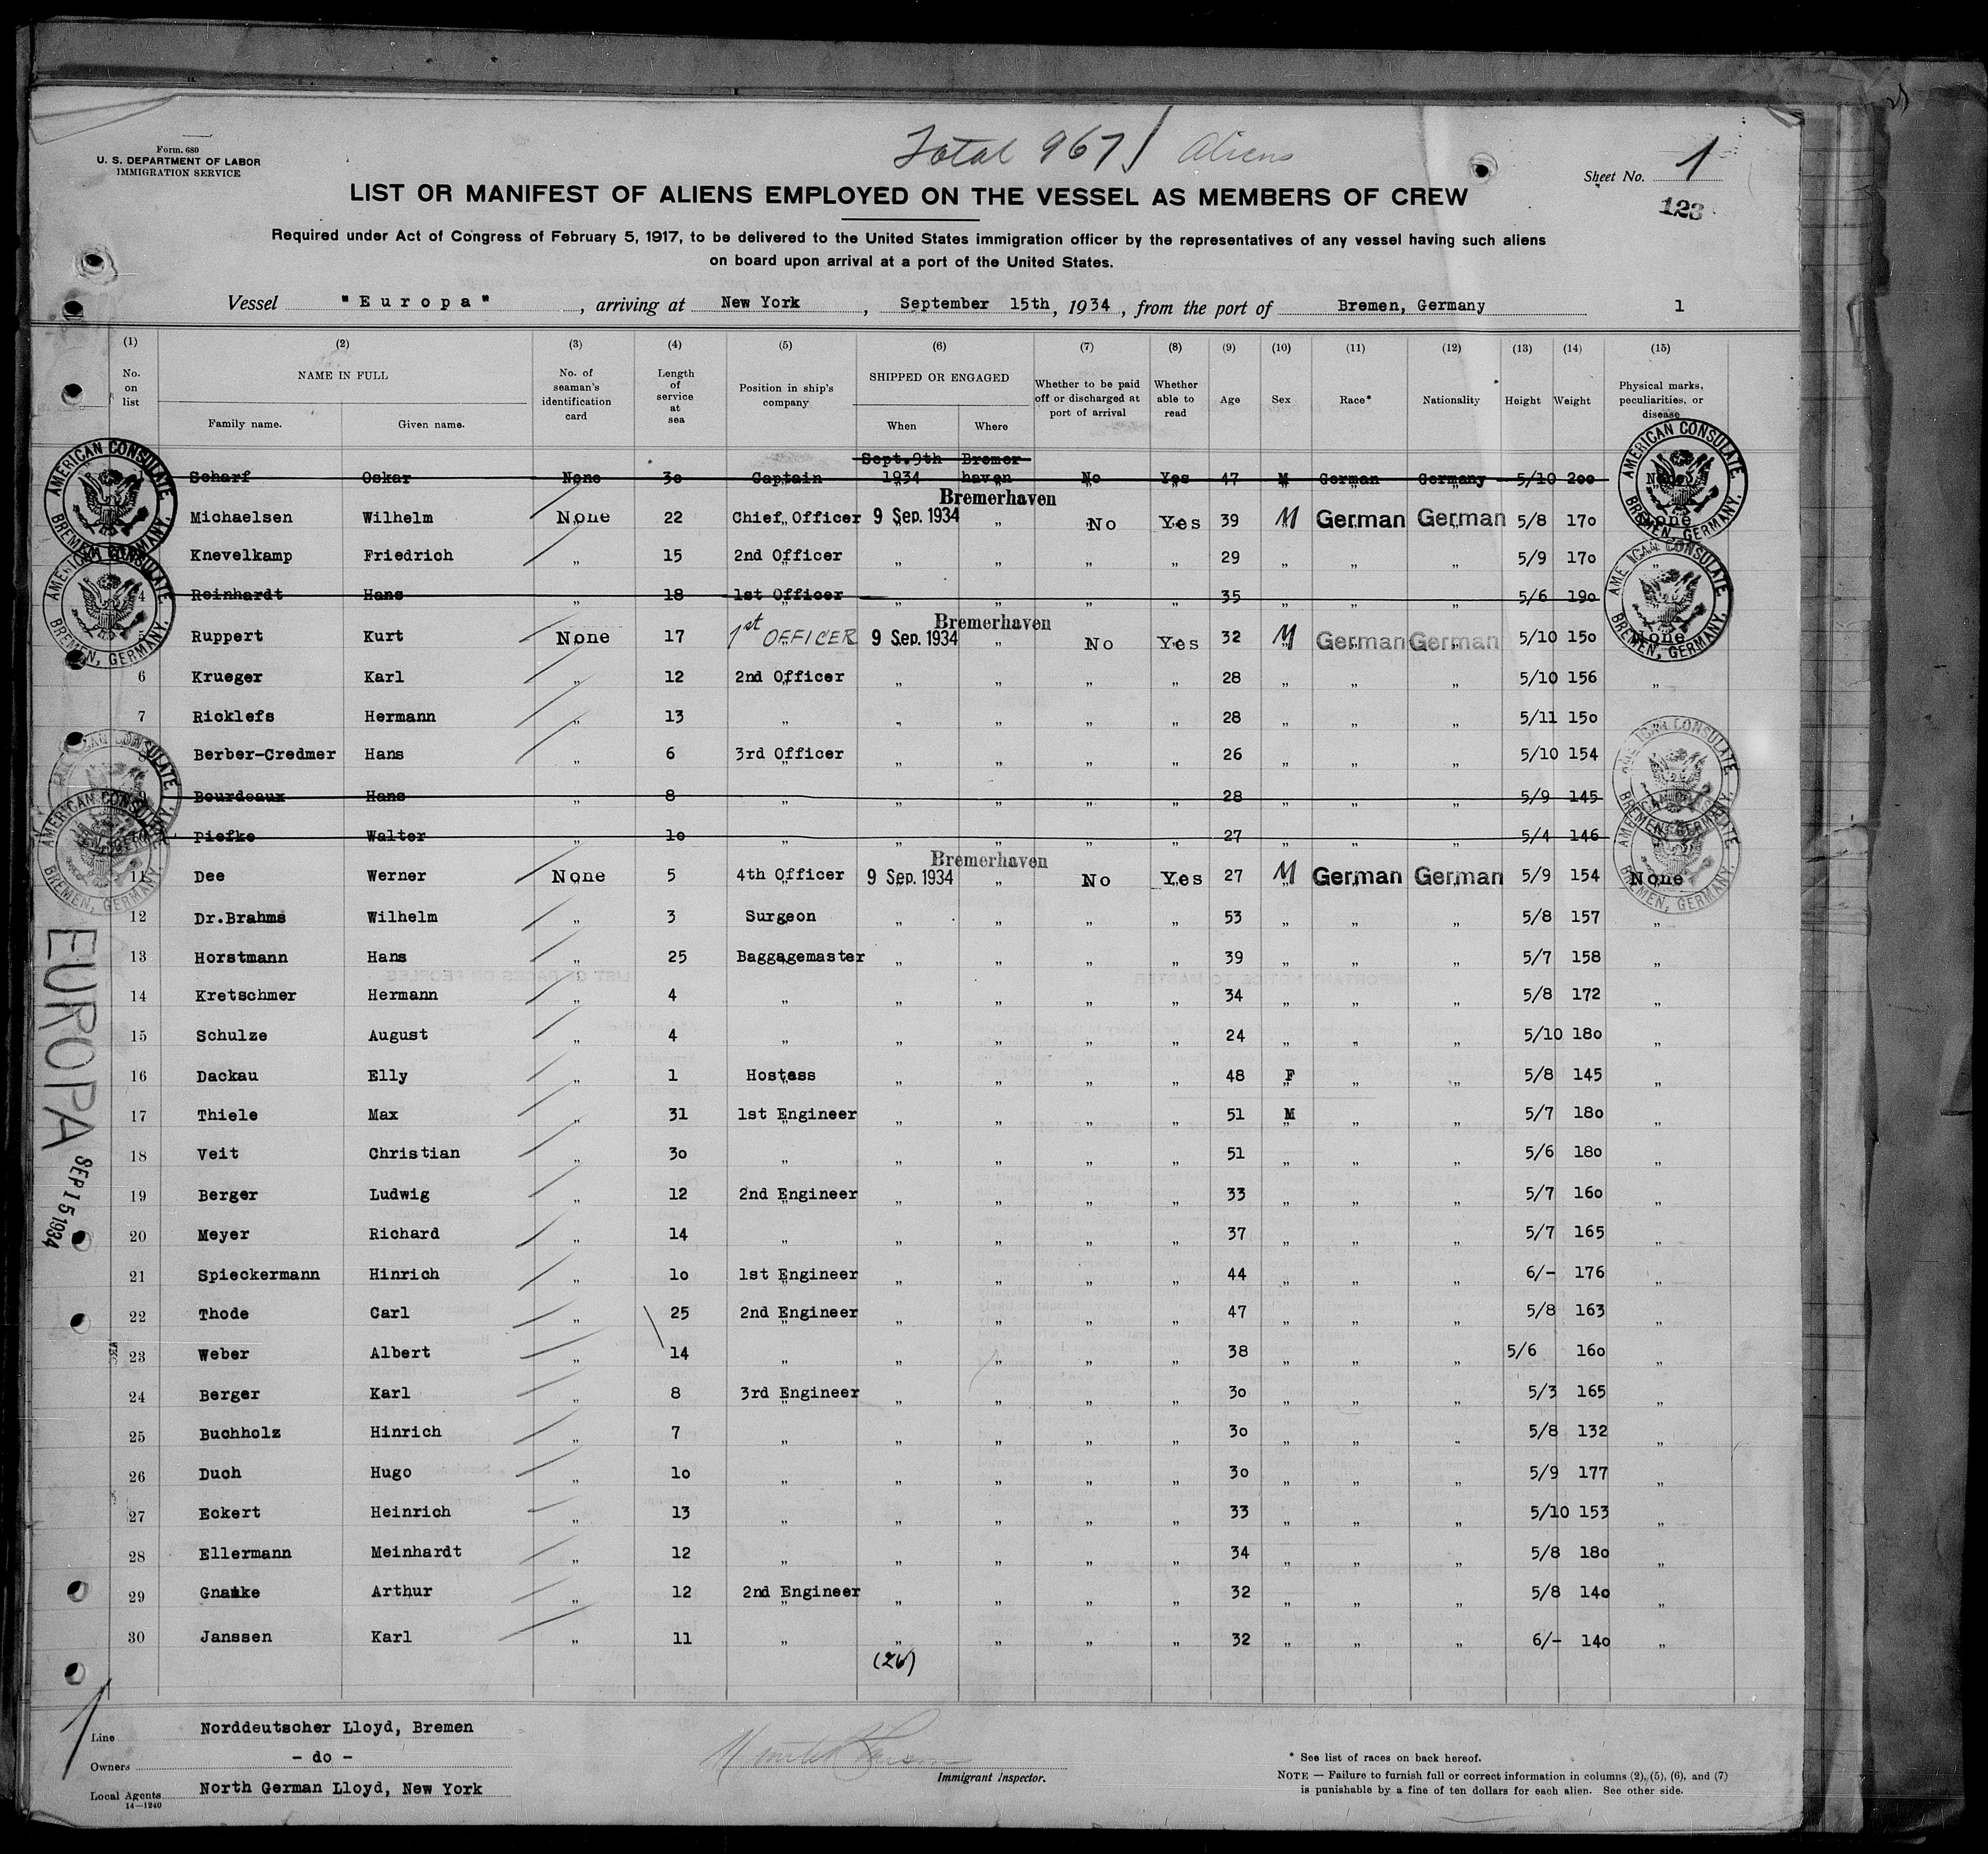 Total 967 Aliens
Form. 680
U. S. DEPARTMENT OF LABOR
IMMIGRATION SERVICE
Sheet No. 1
123
LIST OR MANIFEST OF ALIENS EMPLOYED ON THE VESSEL AS MEMBERS OF CREW
Required under Act of Congress of February 5, 1917, to be delivered to the United States immigration officer by the representatives of any vessel having such aliens
on board upon arrival at a port of the United States.
Vessel "Europa", arriving at New York, September 15th, 1934, from the port of Bremen, Germany 1
(1) (2) (3) (4) (5) (6) (7) (8) (9) (10) (11) (12) (13) (14) (15)
No. on list NAME IN FULL Family name. Given name. No. of seaman's identification card Length of service at sea Position in ship's company SHIPPED OR ENGAGED When Where Whether to be paid off or discharged at port of arrival Whether able to read Age Sex Race* Nationality Height Weight Physical marks, peculiarities, or disease
Sept. 9th Bremer-
Scharf Oskar None 30 Captain 1934 haven No Yes 47 M German Germany 5/10 200 None
Bremerhaven
Michaelsen Wilhelm None 22 Chief Officer 9 Sep. 1934 " No Yes 39 M German German 5/8 170 None
Knevelkamp Friedrich " 15 2nd Officer " " " " 29 " " " 5/9 170 "
4 Reinhardt Hans " 18 1st Officer " " " " 35 " " " 5/6 190
Bremerhaven
5 Ruppert Kurt None 17 1st OFFICER 9 Sep. 1934 " No Yes 32 M German German 5/10 150 None
6 Krueger Karl " 12 2nd Officer " " " " 28 " " " 5/10 156 "
7 Ricklefs Hermann " 13 " " " " " 28 " " " 5/11 150
8 Berber-Credmer Hans " 6 3rd Officer " " " " 26 " " " 5/10 154
9 Bourdeaux Hans " 8 " " " " " 28 " " " 5/9 145
Piefke Walter " 10 " " " " " 27 " " " 5/4 146
Bremerhaven
11 Dee Werner None 5 4th Officer 9 Sep. 1934 " No Yes 27 M German German 5/9 154 None
12 Dr.Brahms Wilhelm " 3 Surgeon " " " " 53 " " " 5/8 157 "
13 Horstmann Hans " 25 Baggagemaster " " " " 39 " " " 5/7 158 "
14 Kretschmer Hermann " 4 " " " " " 34 " " " 5/8 172 "
15 Schulze August " 4 " " " " " 24 " " " 5/10 180 "
16 Dackau Elly " 1 Hostess " " " " 48 F " " 5/8 145 "
17 Thiele Max " 31 1st Engineer " " " " 51 M " " 5/7 180 "
18 Veit Christian " 30 " " " " " 51 " " " 5/6 180 "
19 Berger Ludwig " 12 2nd Engineer " " " " 33 " " " 5/7 160 "
20 Meyer Richard " 14 " " " " " 37 " " " 5/7 165 "
21 Spieckermann Hinrich " 10 1st Engineer " " " " 44 " " " 6/- 176 "
22 Thode Carl " 25 2nd Engineer " " " " 47 " " " 5/8 163 "
23 Weber Albert " 14 " " " " " 38 " " " 5/6 160 "
24 Berger Karl " 8 3rd Engineer " " " " 30 " " " 5/3 165 "
25 Buchholz Hinrich " 7 " " " " " 30 " " " 5/8 132 "
26 Duch Hugo " 10 " " " " " 30 " " " 5/9 177 "
27 Eckert Heinrich " 13 " " " " " 33 " " " 5/10 153 "
28 Ellermann Meinhardt " 12 " " " " " 34 " " " 5/8 180 "
29 Gnamke Arthur " 12 2nd Engineer " " " " 32 " " " 5/8 140 "
30 Janssen Karl " 11 " " " " " 32 " " " 6/- 140 "
(26)
AMERICAN CONSULATE BREMEN, GERMANY.
AMERICAN CONSULATE BREMEN, GERMANY.
AMERICAN CONSULATE BREMEN, GERMANY.
AMERICAN CONSULATE BREMEN, GERMANY.
AMERICAN CONSULATE BREMEN, GERMANY.
AMERICAN CONSULATE BREMEN, GERMANY.
AMERICAN CONSULATE BREMEN, GERMANY.
AMERICAN CONSULATE BREMEN, GERMANY.
EUROPA
SEP 15 1934
Line Norddeutscher Lloyd, Bremen
Owners - do -
Local Agents North German Lloyd, New York
14—1240
Immigrant Inspector.
* See list of races on back hereof.
NOTE — Failure to furnish full or correct information in columns (2), (5), (6), and (7)
is punishable by a fine of ten dollars for each alien. See other side.